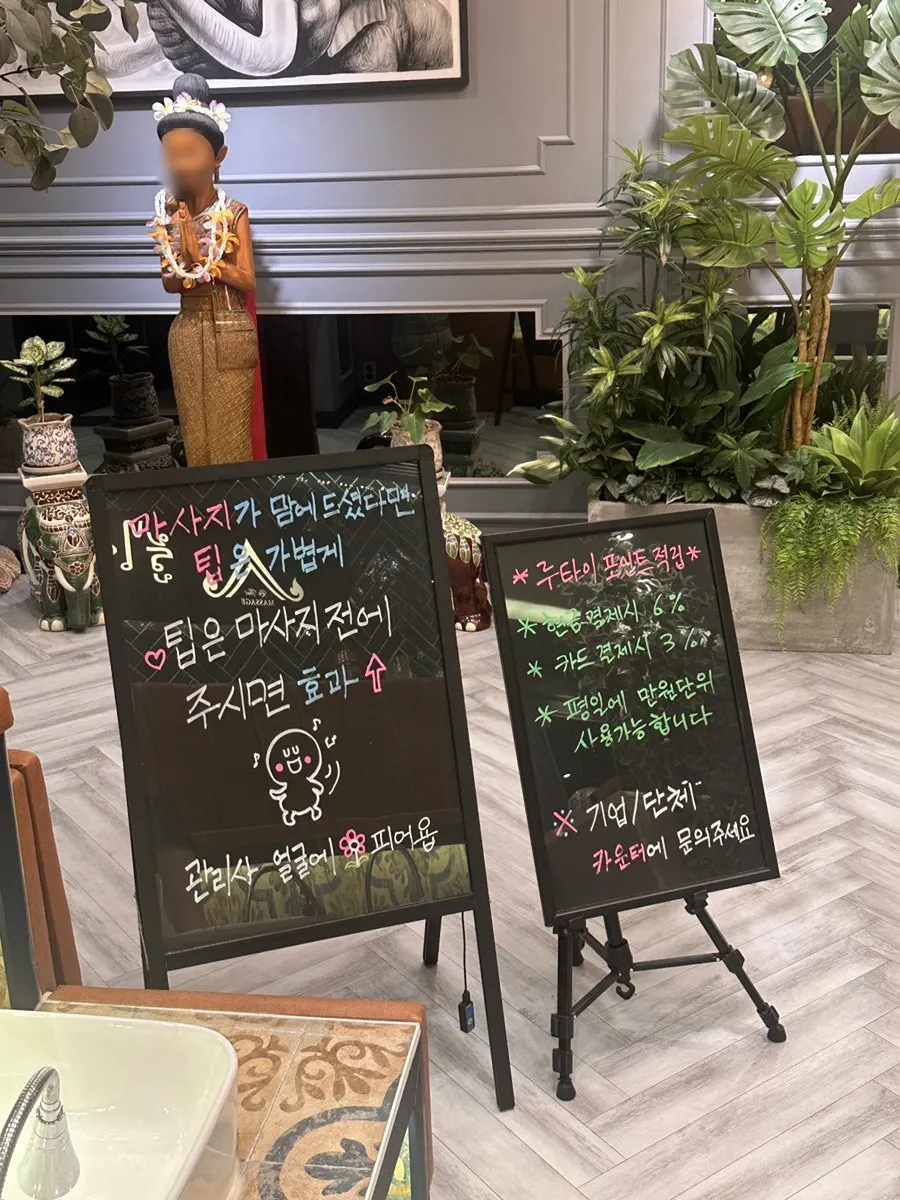 마사지가 맘에 드셨다면
팁은 가볍게
MASSAGE
팁은 마사지 전에
주시면 효과↑
관리사 얼굴에 피어욥
*루타이 포인트 적립*
* 현금결제시 6%
* 카드결제시 3%
* 평일에 만원단위
사용가능합니다
※ 기업/단체
카운터에 문의주세요